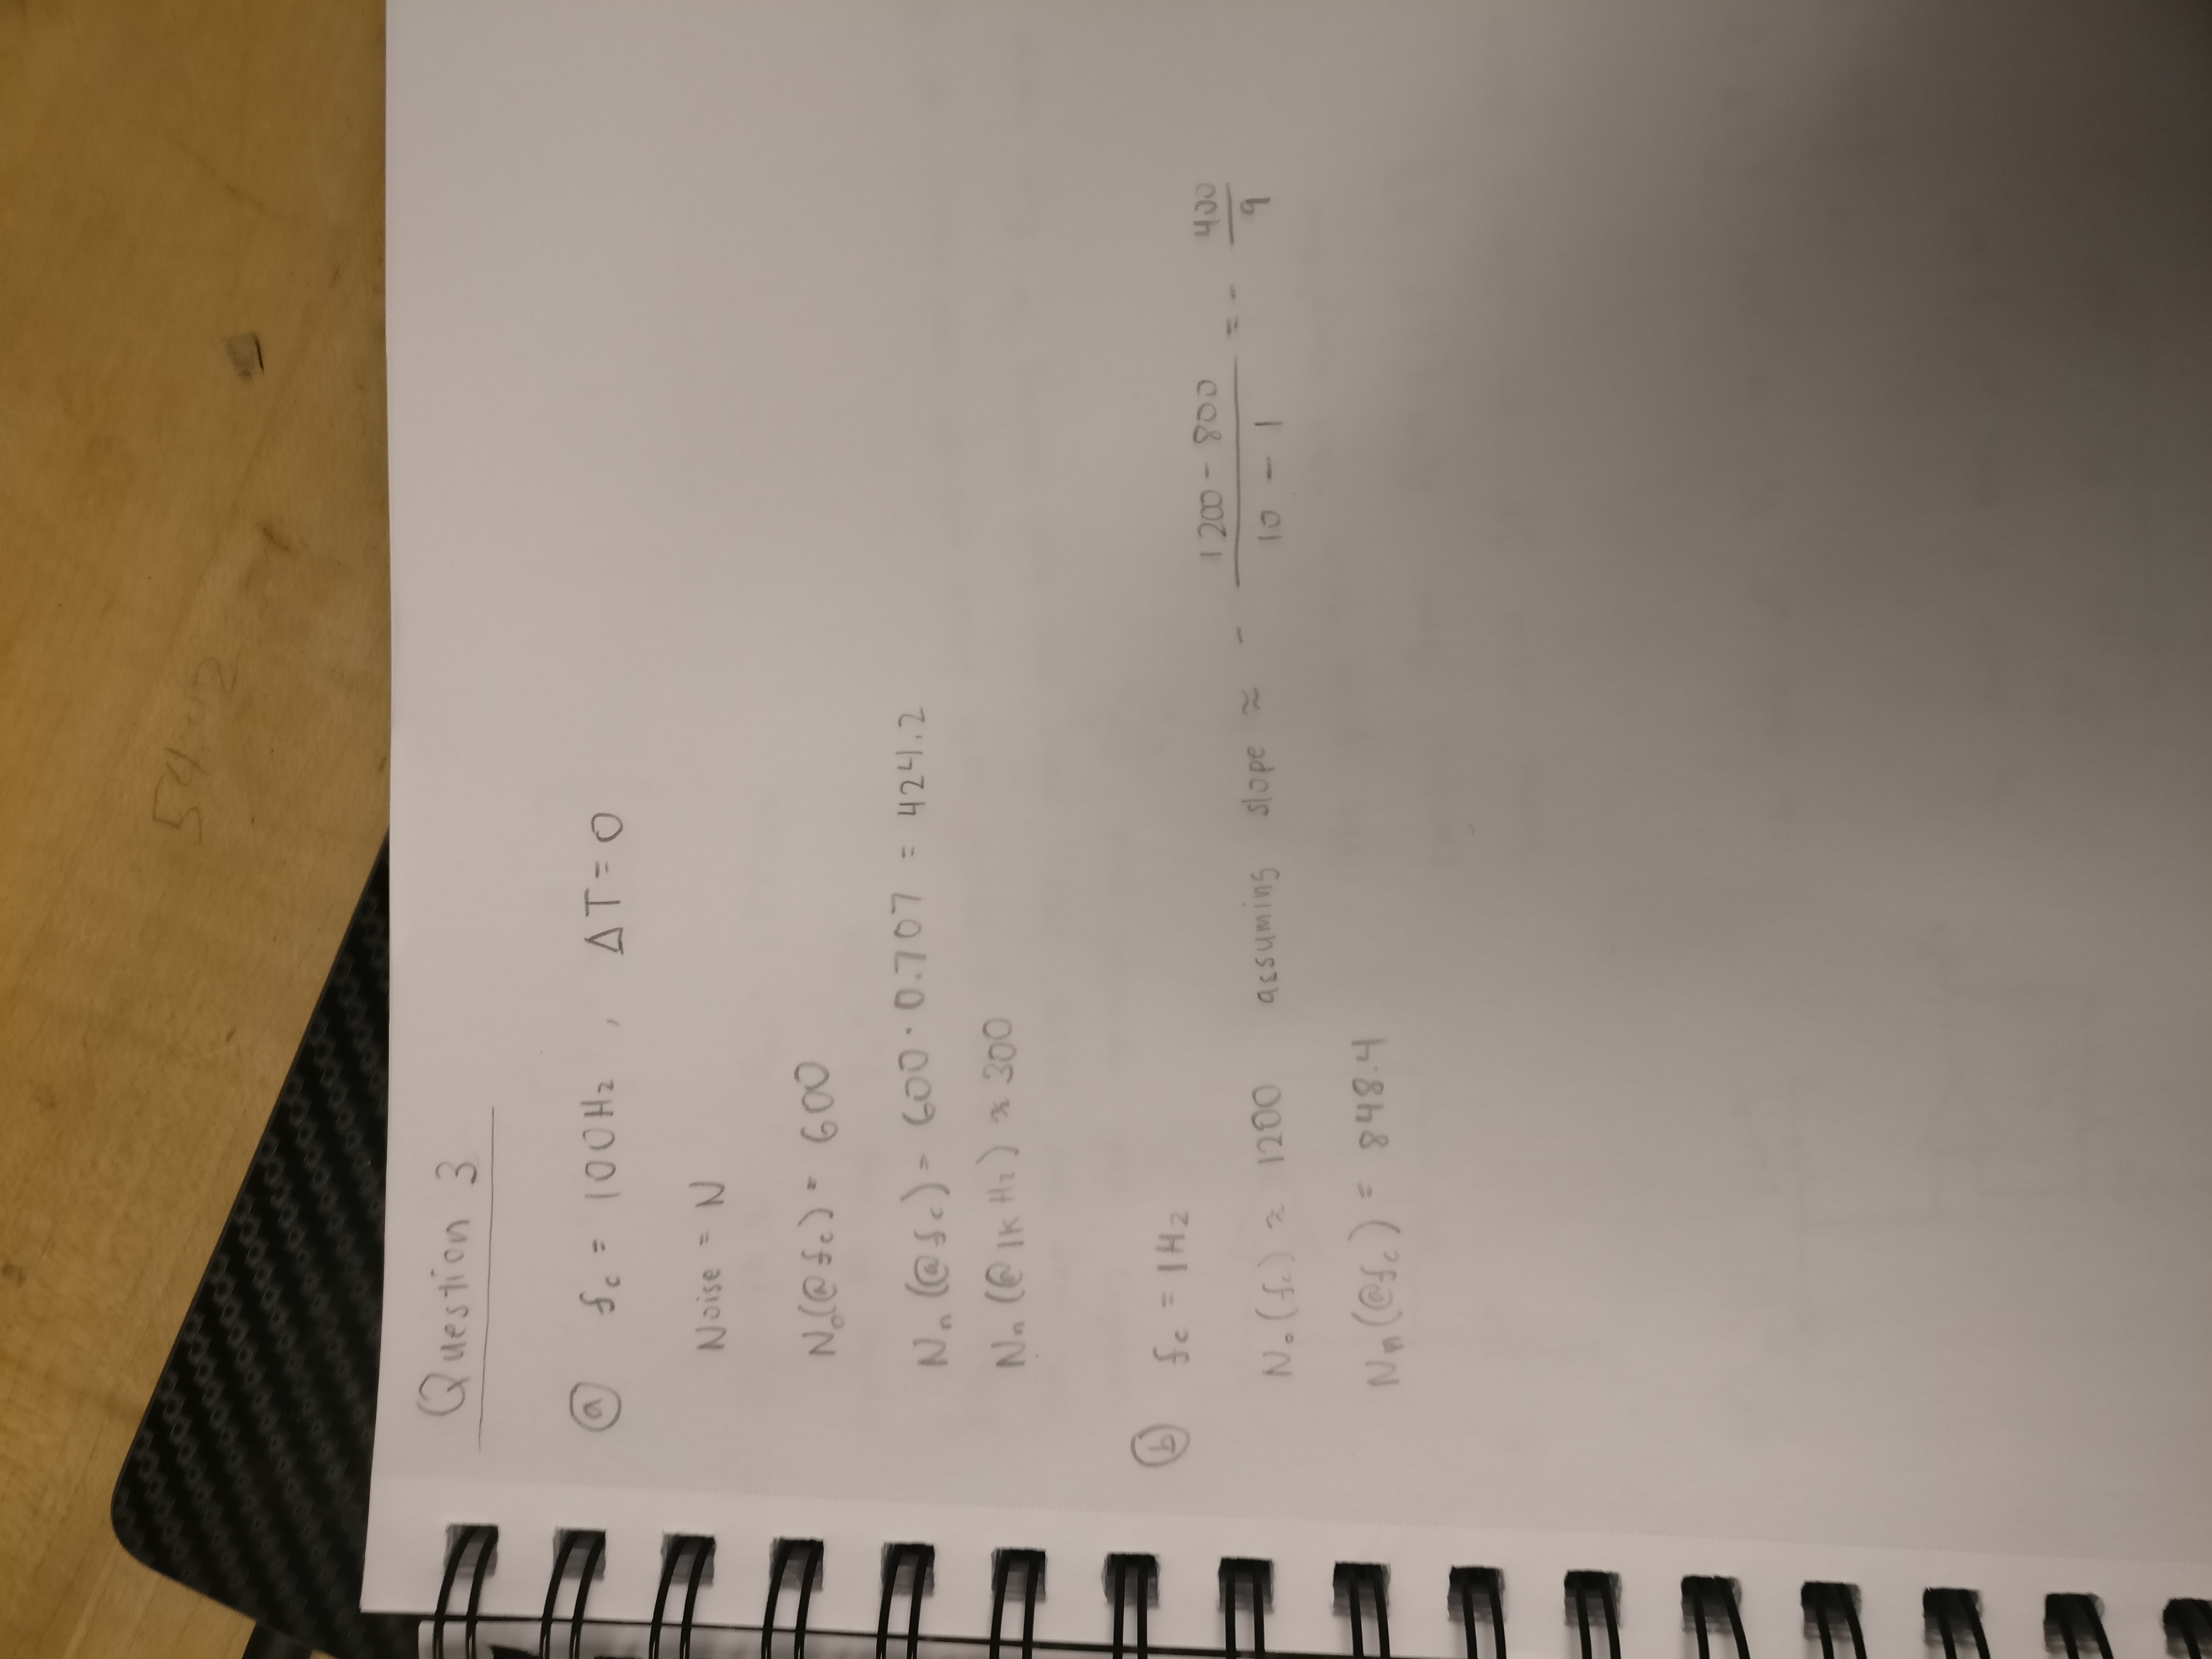 54.42
Question 3
(a) fc = 100Hz , ΔT = 0
Noise = N
No(@fc) = 600
Nn(@fc) = 600 · 0.707 = 424.2
Nn(@1KHz) ≈ 300
(b) fc = 1Hz
No(fc) ≈ 1200 assuming slope ≈ - (1200 - 800)/(10 - 1) = - 400/9
Nn(@fc) = 848.4